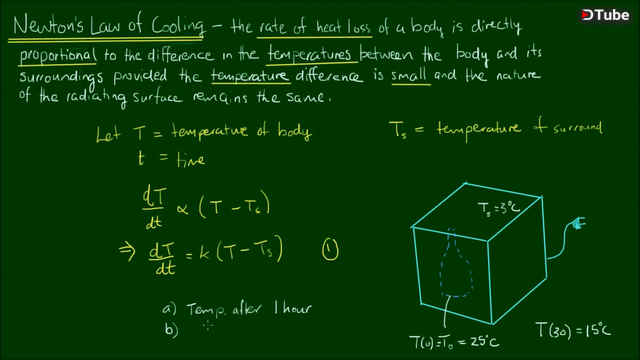 DTube
Newton's Law of Cooling - the rate of heat loss of a body is directly
proportional to the difference in the temperatures between the body and its
surroundings provided the temperature difference is small and the nature
of the radiating surface remains the same.
Let T = temperature of body
Ts = temperature of surround
t = time
dT/dt ∝ (T - Ts)
⇒ dT/dt = k (T - Ts) ①
Ts = 3°C
a) Temp. after 1 hour
b)
T(0) = T₀ = 25°C
T(30) = 15°C